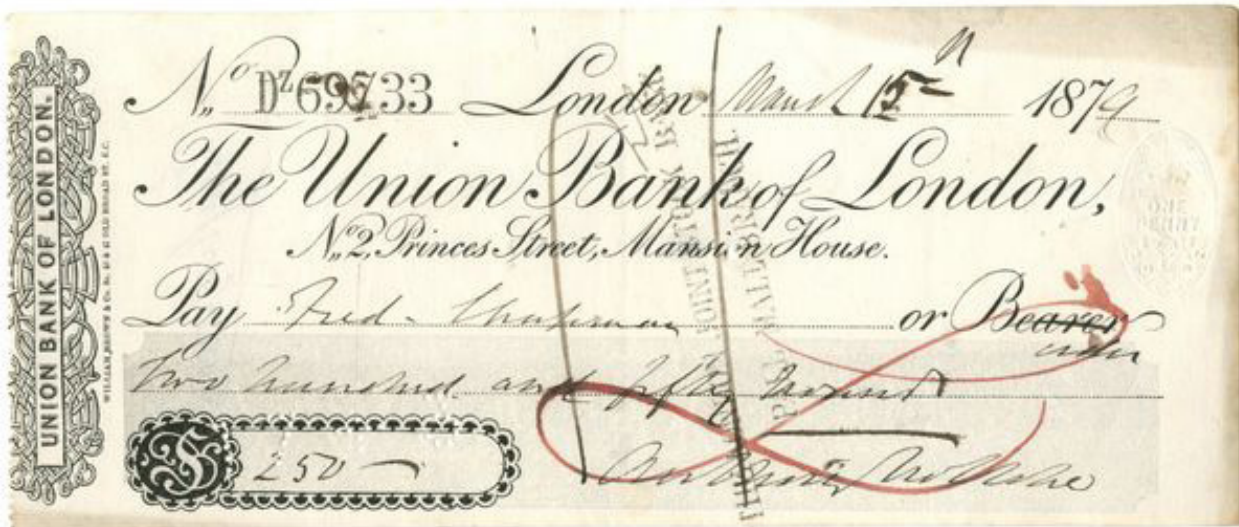 UNION BANK OF LONDON.
No. DZ 69733 London March 15th 1879
The Union Bank of London,
No. 2, Princes Street, Mansion House.
Pay Fred. Chapman or Bearer
order
Two hundred and fifty pounds
£ 250
Anthony Trollope
ONE PENNY